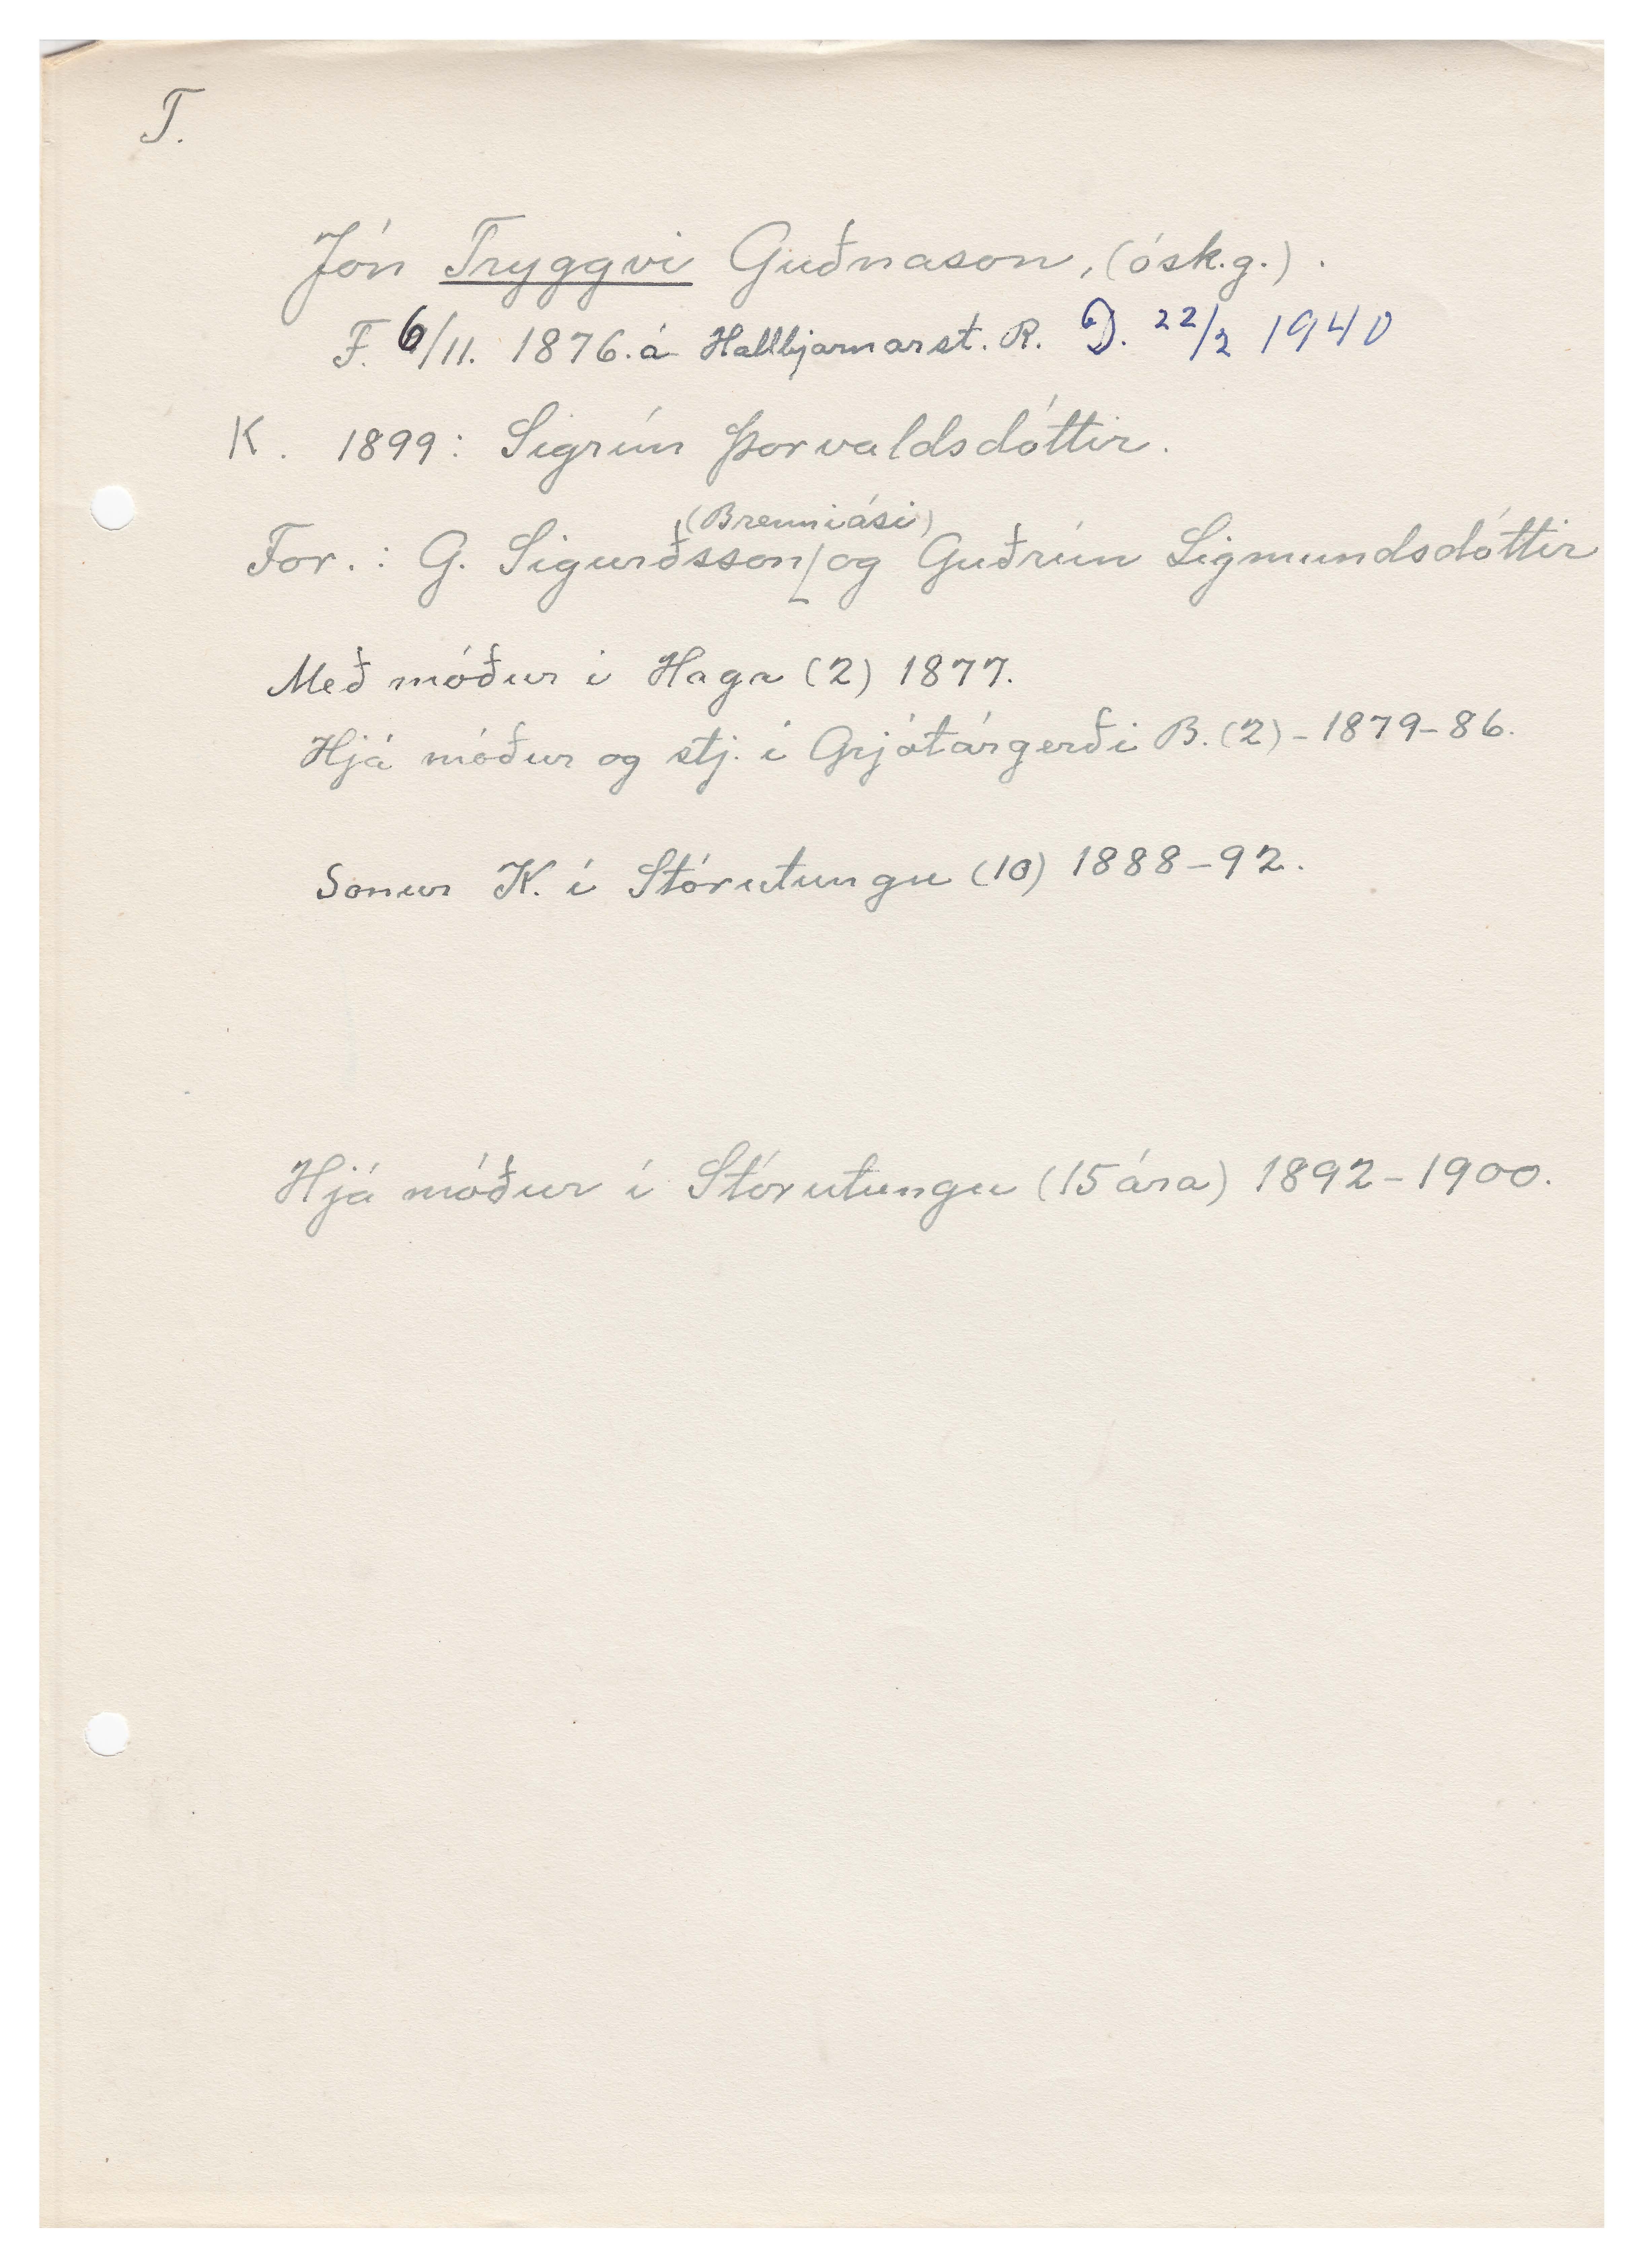 T.
Jón Tryggvi Guðnason, (ósk.g.).
F. 6/11. 1876. á Hallbjarnarst. R. D. 22/2 1940
K. 1899: Sigrún Þorvaldsdóttir.
(Brenniási)
For.: G. Sigurðsson/og Guðrún Sigmundsdóttir
Með móður í Haga (2) 1877.
Hjá móður og stj. í Grjótárgerði B. (2) - 1879-86.
Sonur K. í Stórutungu (10) 1888-92.
Hjá móður í Stórutungu (15 ára) 1892-1900.